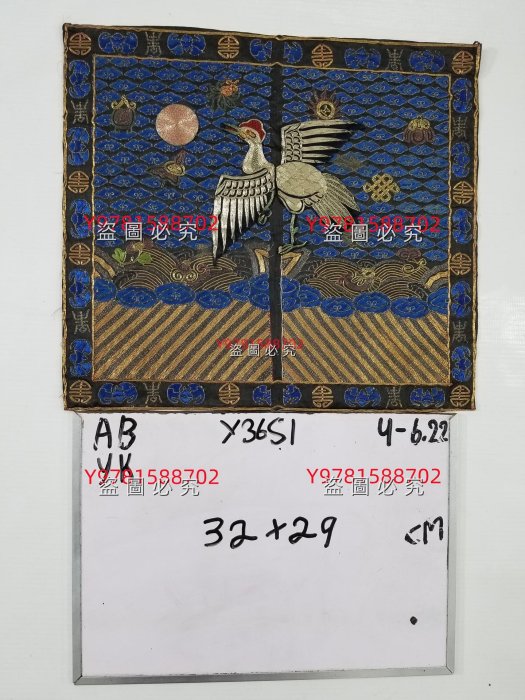 Y9781588702 Y9781588702
盜圖必究 盜圖必究
Y9781588702
盜圖必究
AB X3651 4-6.22
YK
Y9781588702 Y9781588702
盜圖必究 盜圖必究
32x29 CM